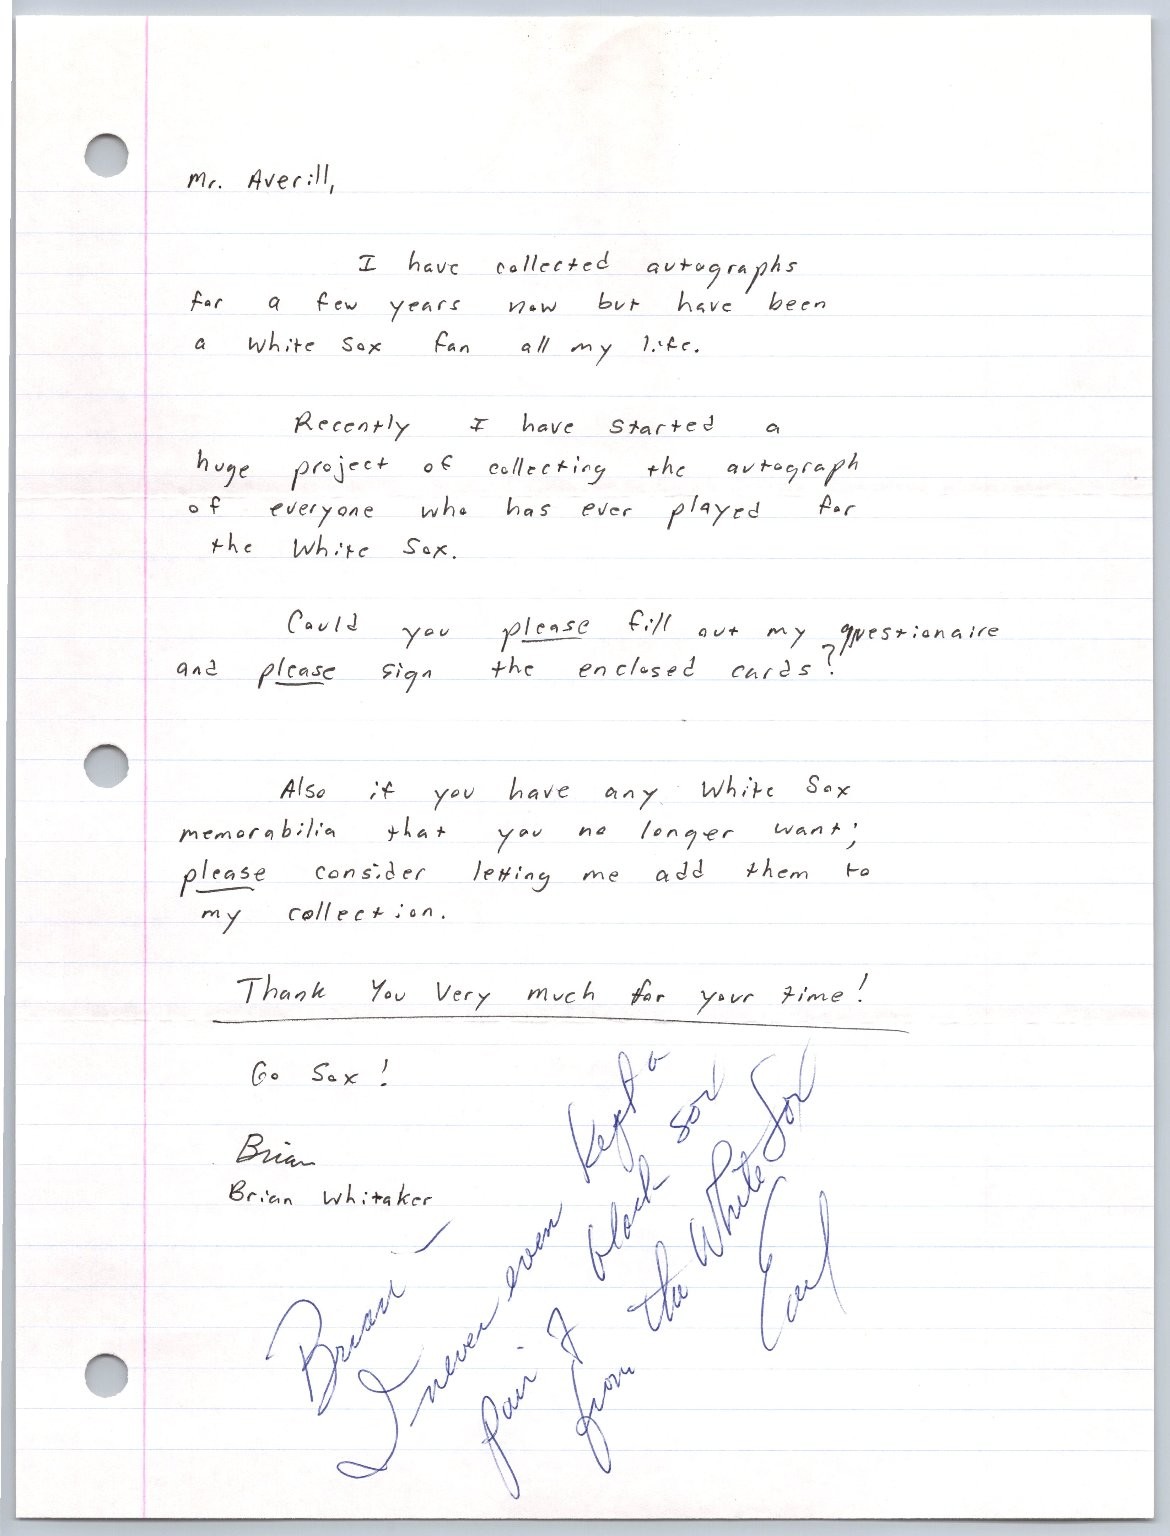 Mr. Averill,
I have collected autographs
for a few years now but have been
a White Sox fan all my life.
Recently I have started a
huge project of collecting the autograph
of everyone who has ever played for
the White Sox.
Could you please fill out my questionaire
and please sign the enclosed cards?
Also if you have any White Sox
memorabilia that you no longer want;
please consider letting me add them to
my collection.
Thank You Very much for your time!
Go Sox!
Brian
Brian Whitaker
Brian -
I never even kept a
pair of black sox
from the White Sox
Earl